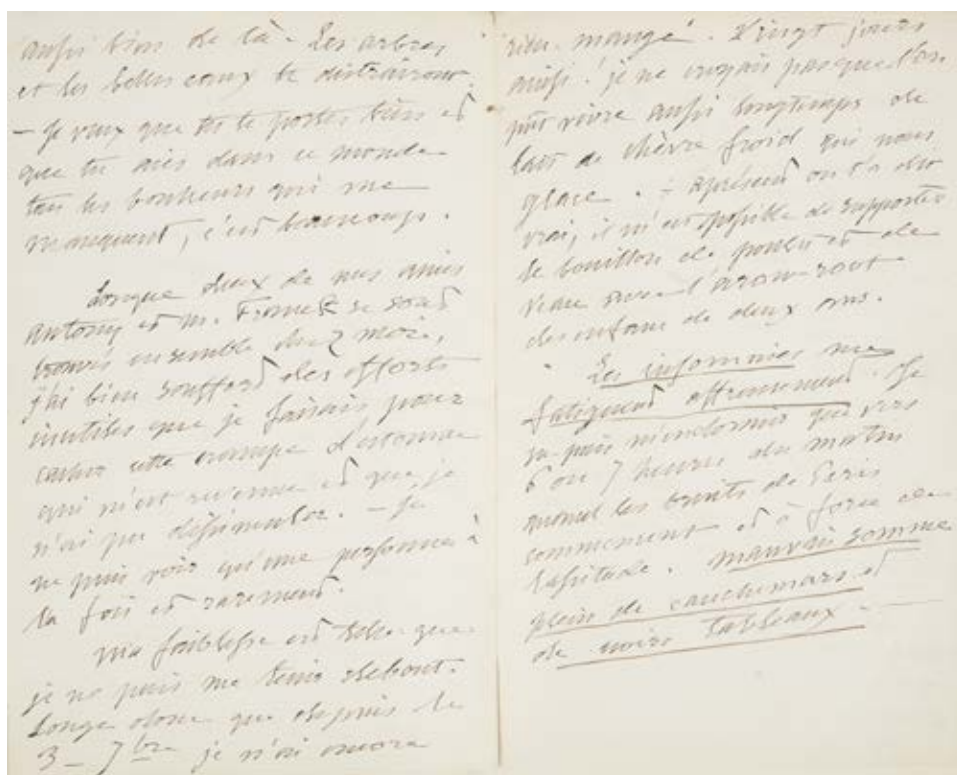 aussi bien de là. Les arbres
et les belles eaux te distrairont.
– Je veux que tu te portes bien et
que tu aies dans ce monde
tous les bonheurs qui me
manquent, c'est beaucoup.
Lorsque deux de nos amis
antony et M. Froment se sont
trouvés ensemble chez moi,
j'ai bien souffert des efforts
inutiles que je faisais pour
cacher cette crampe d'estomac
qui m'est revenue et que je
n'ai pu dissimuler. – Je
ne puis voir qu'une personne à
la fois et rarement.
Ma faiblesse est telle que
je ne puis me tenir debout.
Songe donc que depuis le
3 – 7bre je n'ai encore
rien mangé. Vingt jours
ainsi ! je ne croyais pas que l'on
pût vivre aussi longtemps de
lait de chèvre froid qui nous
glace. – Aprésent on t'a dit
vrai, il m'est possible de supporter
le bouillon de poulet et de
veau avec l'arow-root
des enfans de deux ans.
Les insomnies me
fatiguent affreusement. Je
ne puis m'endormir que vers
6 ou 7 heures du matin
quand les bruits de Paris
commencent et à force de
lassitude. mauvais somme
plein de cauchemars et
de noirs tableaux.